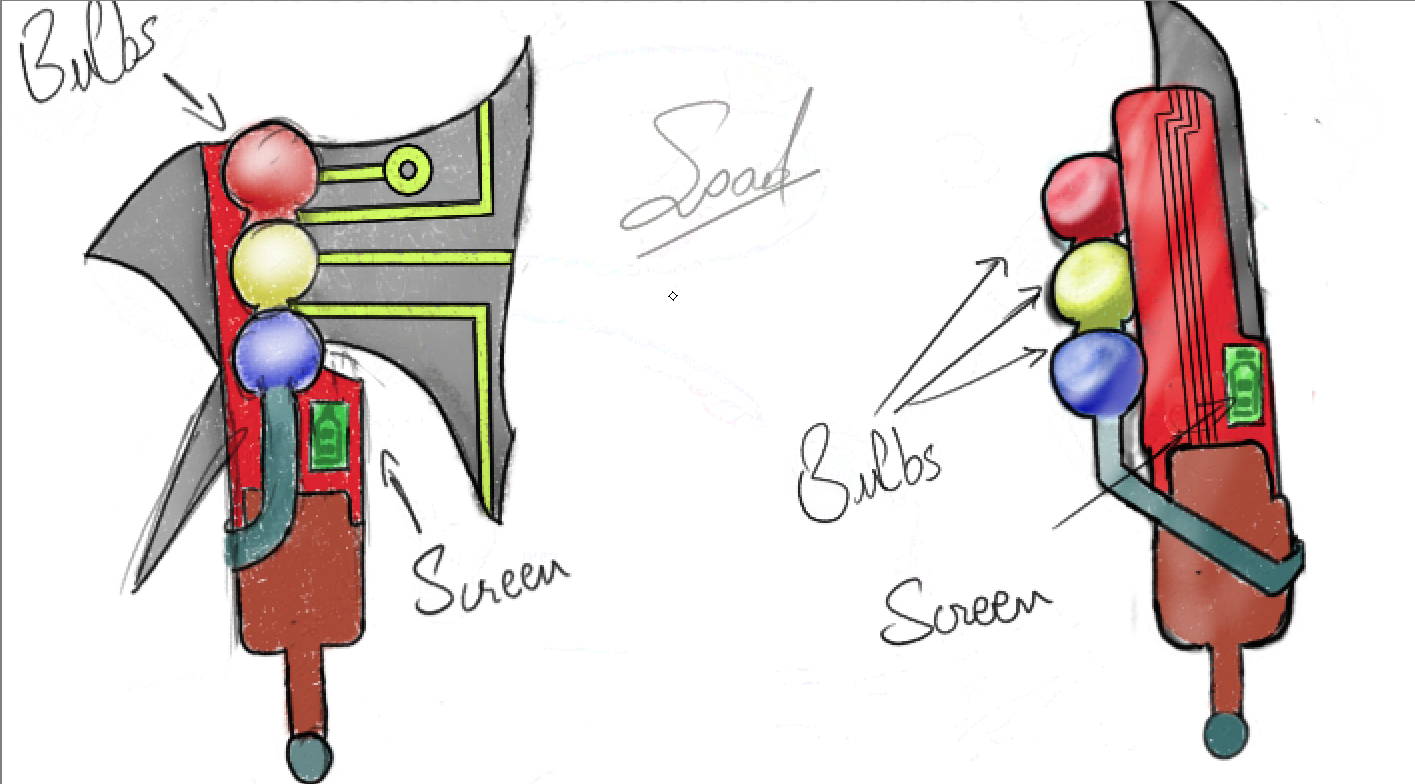 Bulbs
Screen
Bulbs
Screen